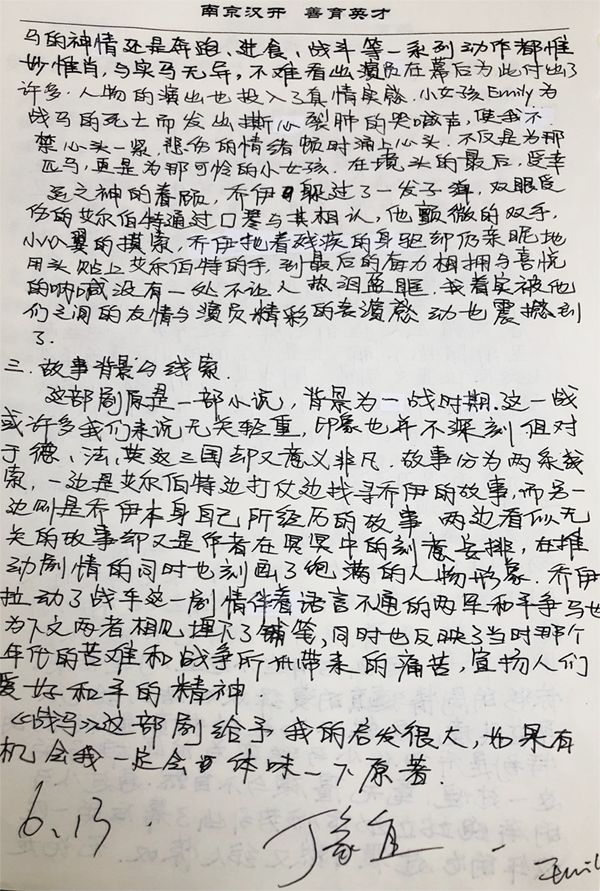 南京汉开 善育英才
马的神情还是奔跑、进食、战斗等一系列动作都惟
妙惟肖，与实马无异，不难看出演员在幕后为此付出了
许多。人物的演出也投入了真情实感。小女孩Emily为
战马的死亡而发出撕心裂肺的哭喊声，使我不
禁心头一紧，悲伤的情绪顿时涌上心头。不仅是为那
匹马，更是为那可怜的小女孩。在镜头的最后，受幸
运之神的眷顾，乔伊躲过了一发子弹，双眼受
伤的艾尔伯特通过口琴与其相认，他颤微的双手，
小心翼的摸索，乔伊拖着残疾的身躯却仍亲昵地
用头贴上艾尔伯特的手，到最后的奋力相拥与喜悦
的呐喊没有一处不让人热泪盈眶。我着实被他
们之间的友情与演员精彩的表演感动也震撼到
了。
三．故事背景与线索．
这部剧原是一部小说，背景为一战时期．这一战
或许多我们来说无关轻重，印象也并不深刻但对
于德、法、英这三国却又意义非凡．故事分为两条线
索，一边是艾尔伯特边打仗边找寻乔伊的故事，而另一
边则是乔伊本身自己所经历的故事 两边看似无
关的故事却又是作者在冥冥中的刻意安排，在推
动剧情的同时也刻画了饱满的人物形象．乔伊
拉动了战车这一剧情伴着语言不通的两军和平争马也
为下文两者相见埋下了铺笔，同时也反映了当时那个
年代的苦难和战争所带来的痛苦，宣扬人们
爱好和平的精神
《战马》这部剧给予我的启发很大，如果有
机会我一定会体味一下原著．
6.13
丁
宜
Emil